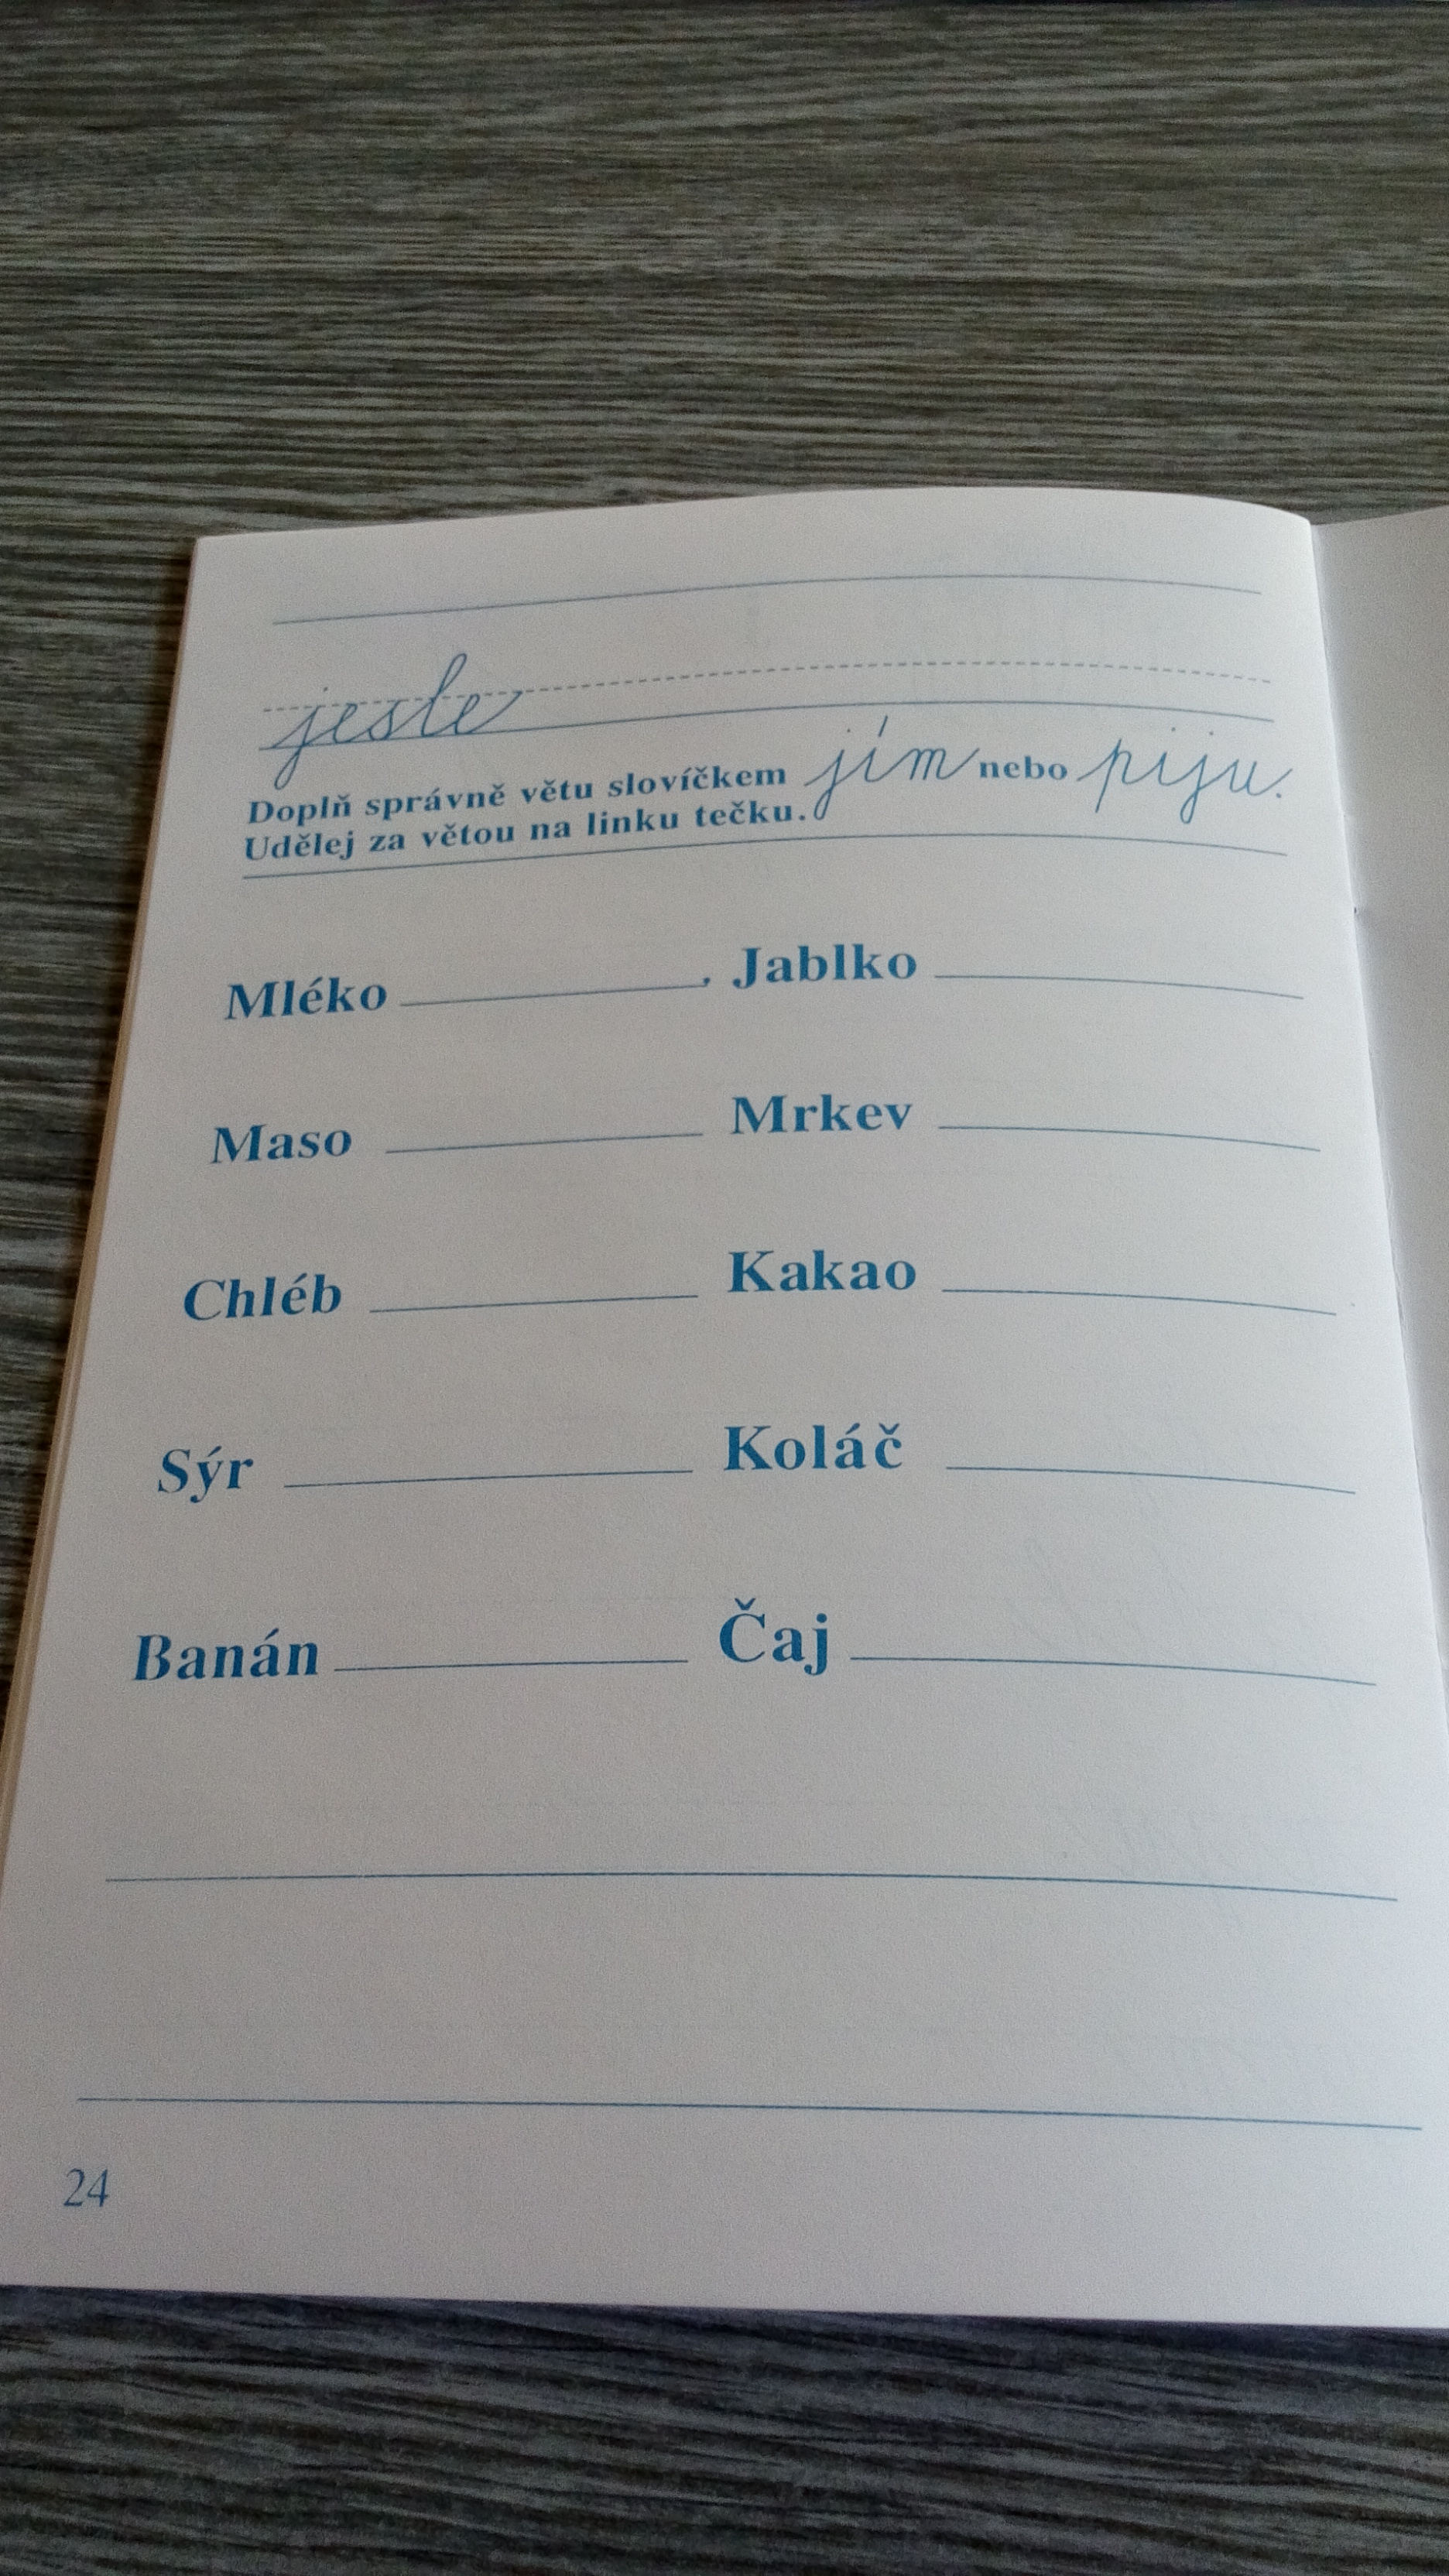 jesle
Doplň správně větu slovíčkem jím nebo piju.
Udělej za větou na linku tečku.
Mléko ________. Jablko ________
Maso ________ Mrkev ________
Chléb ________ Kakao ________
Sýr ________ Koláč ________
Banán ________ Čaj ________
24